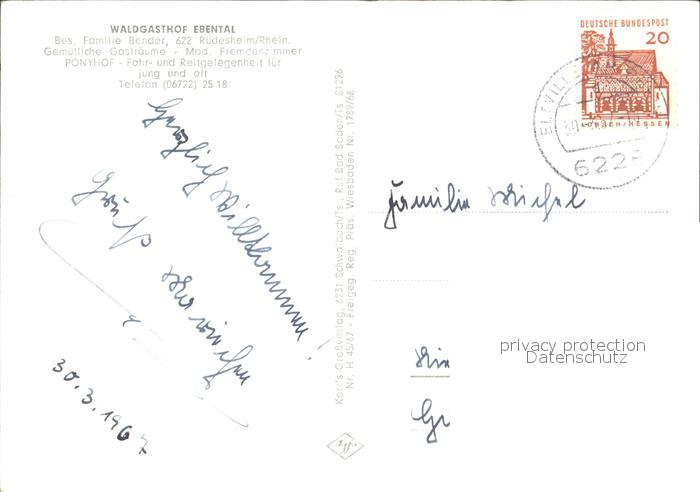 WALDGASTHOF EBENTAL
Bes. Familie Bender, 622 Rüdesheim/Rhein.
Gemütliche Gasträume - Mod. Fremdenzimmer
PONYHOF - Fahr- und Reitgelegenheit für
jung und alt
Telefon (06722) 25 18
Herzlich Willkommen!
Gruß
30.3.1967
Korr's Großverlag, 6231 Schwalbach/Ts., Ruf: Bad Soden/Ts. 81296
Nr. H 45/67 - Freigeg. Reg. Präs. Wiesbaden Nr. 1789/66
DEUTSCHE BUNDESPOST
20
LORSCH/HESSEN
ELTVILLE
30.
622
Familie Michel
privacy protection
Datenschutz